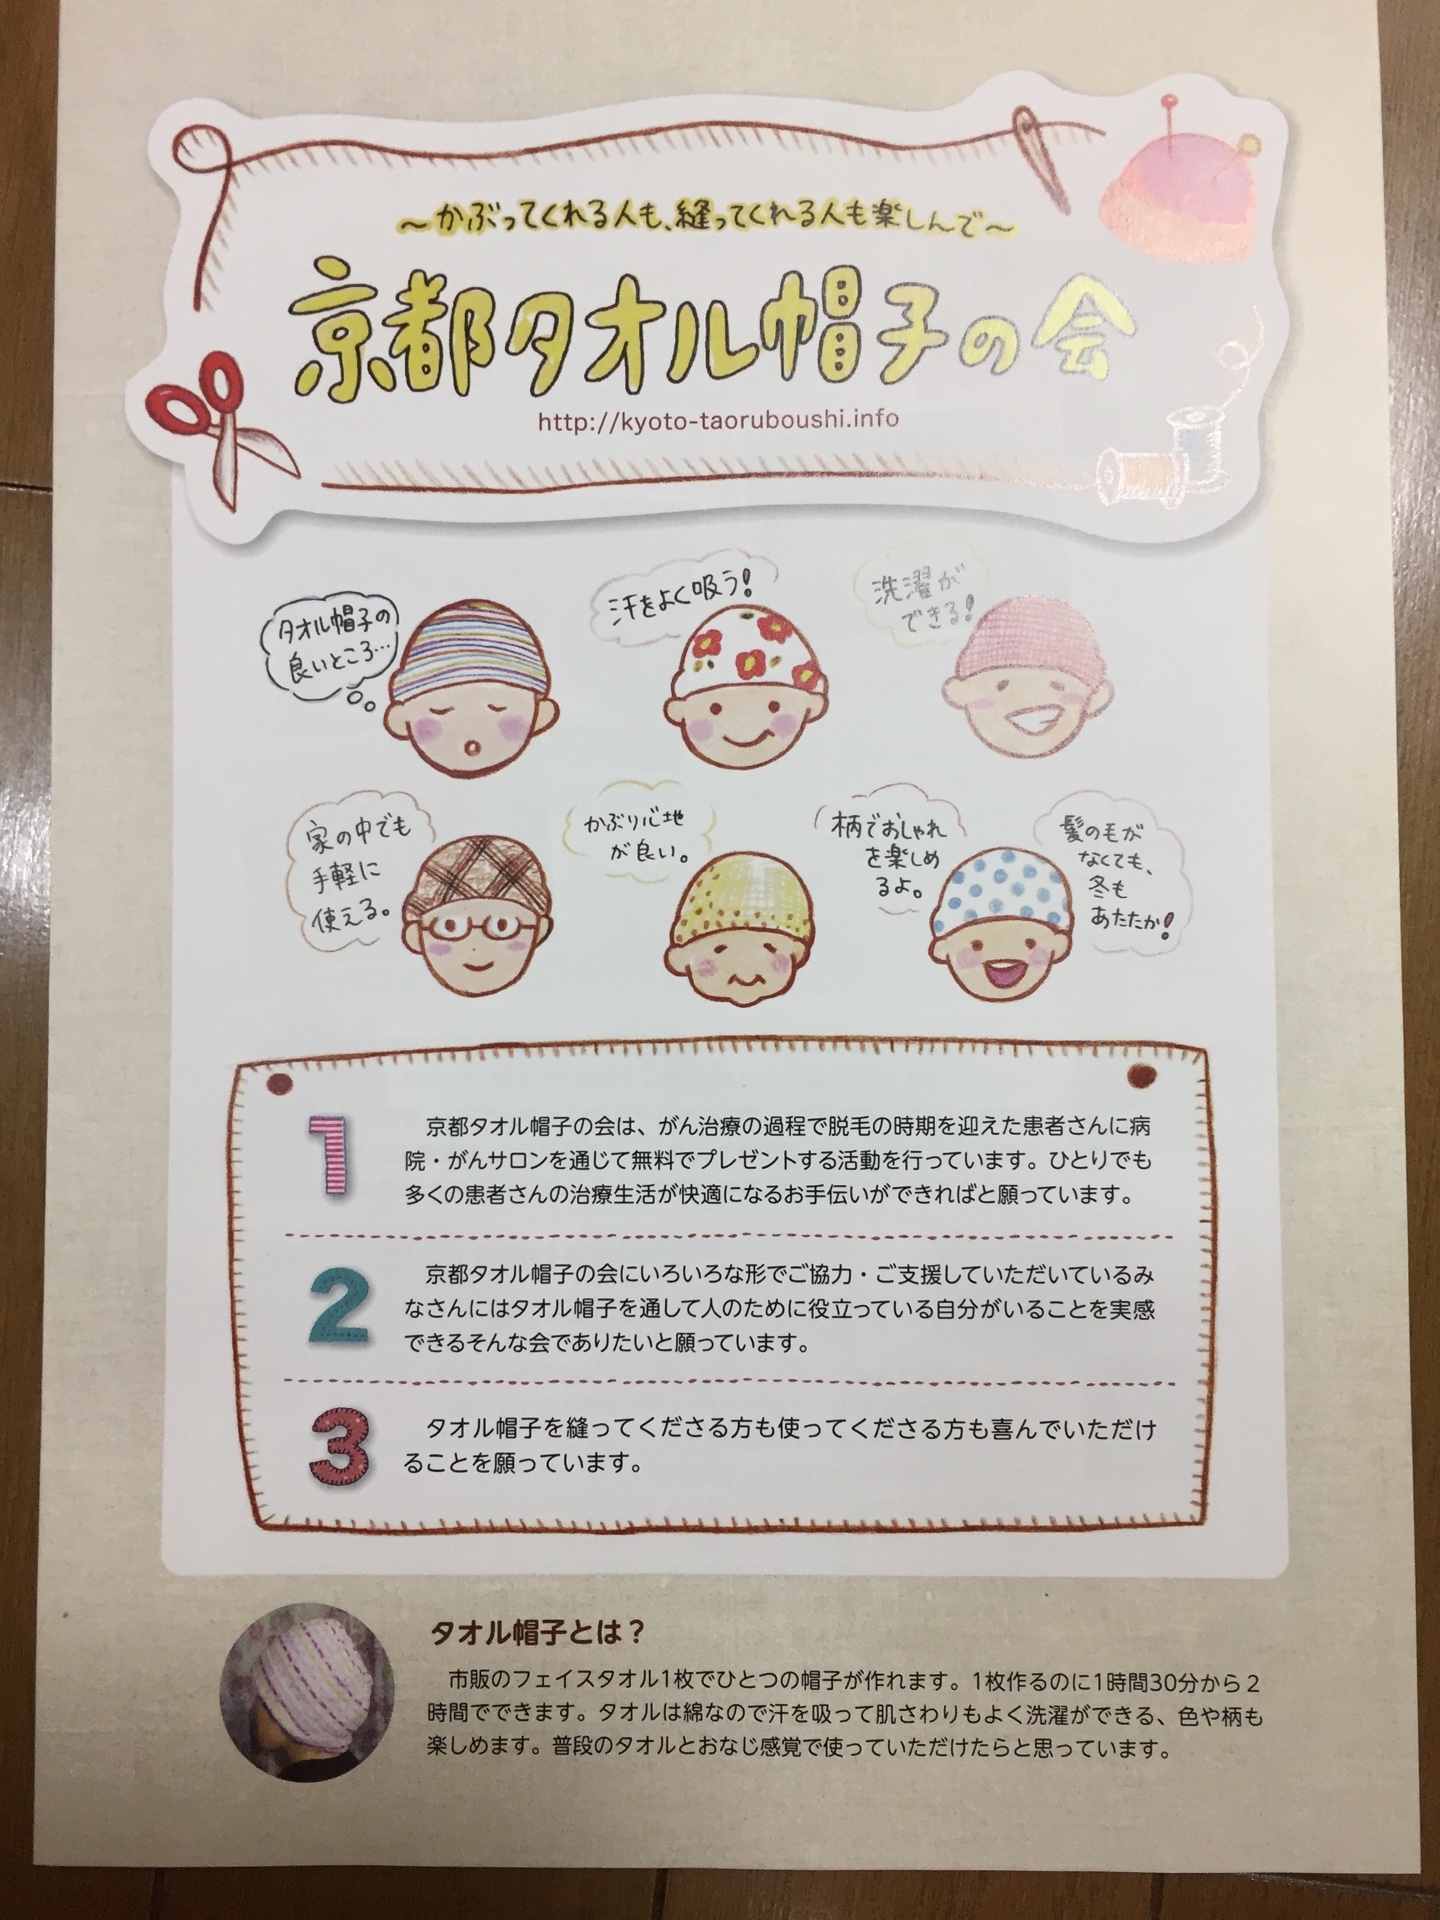 ～かぶってくれる人も、縫ってくれる人も楽しんで～
京都タオル帽子の会
http://kyoto-taoruboushi.info
タオル帽子の
良いところ…
汗をよく吸う!
洗濯が
できる!
家の中でも
手軽に
使える。
かぶり心地
が良い。
柄でおしゃれ
を楽しめ
るよ。
髪の毛が
なくても、
冬も
あたたか!
1
京都タオル帽子の会は、がん治療の過程で脱毛の時期を迎えた患者さんに病
院・がんサロンを通じて無料でプレゼントする活動を行っています。ひとりでも
多くの患者さんの治療生活が快適になるお手伝いができればと願っています。
2
京都タオル帽子の会にいろいろな形でご協力・ご支援していただいているみ
なさんにはタオル帽子を通して人のために役立っている自分がいることを実感
できるそんな会でありたいと願っています。
3
タオル帽子を縫ってくださる方も使ってくださる方も喜んでいただけ
ることを願っています。
タオル帽子とは？
市販のフェイスタオル1枚でひとつの帽子が作れます。1枚作るのに1時間30分から２
時間でできます。タオルは綿なので汗を吸って肌さわりもよく洗濯ができる、色や柄も
楽しめます。普段のタオルとおなじ感覚で使っていただけたらと思っています。